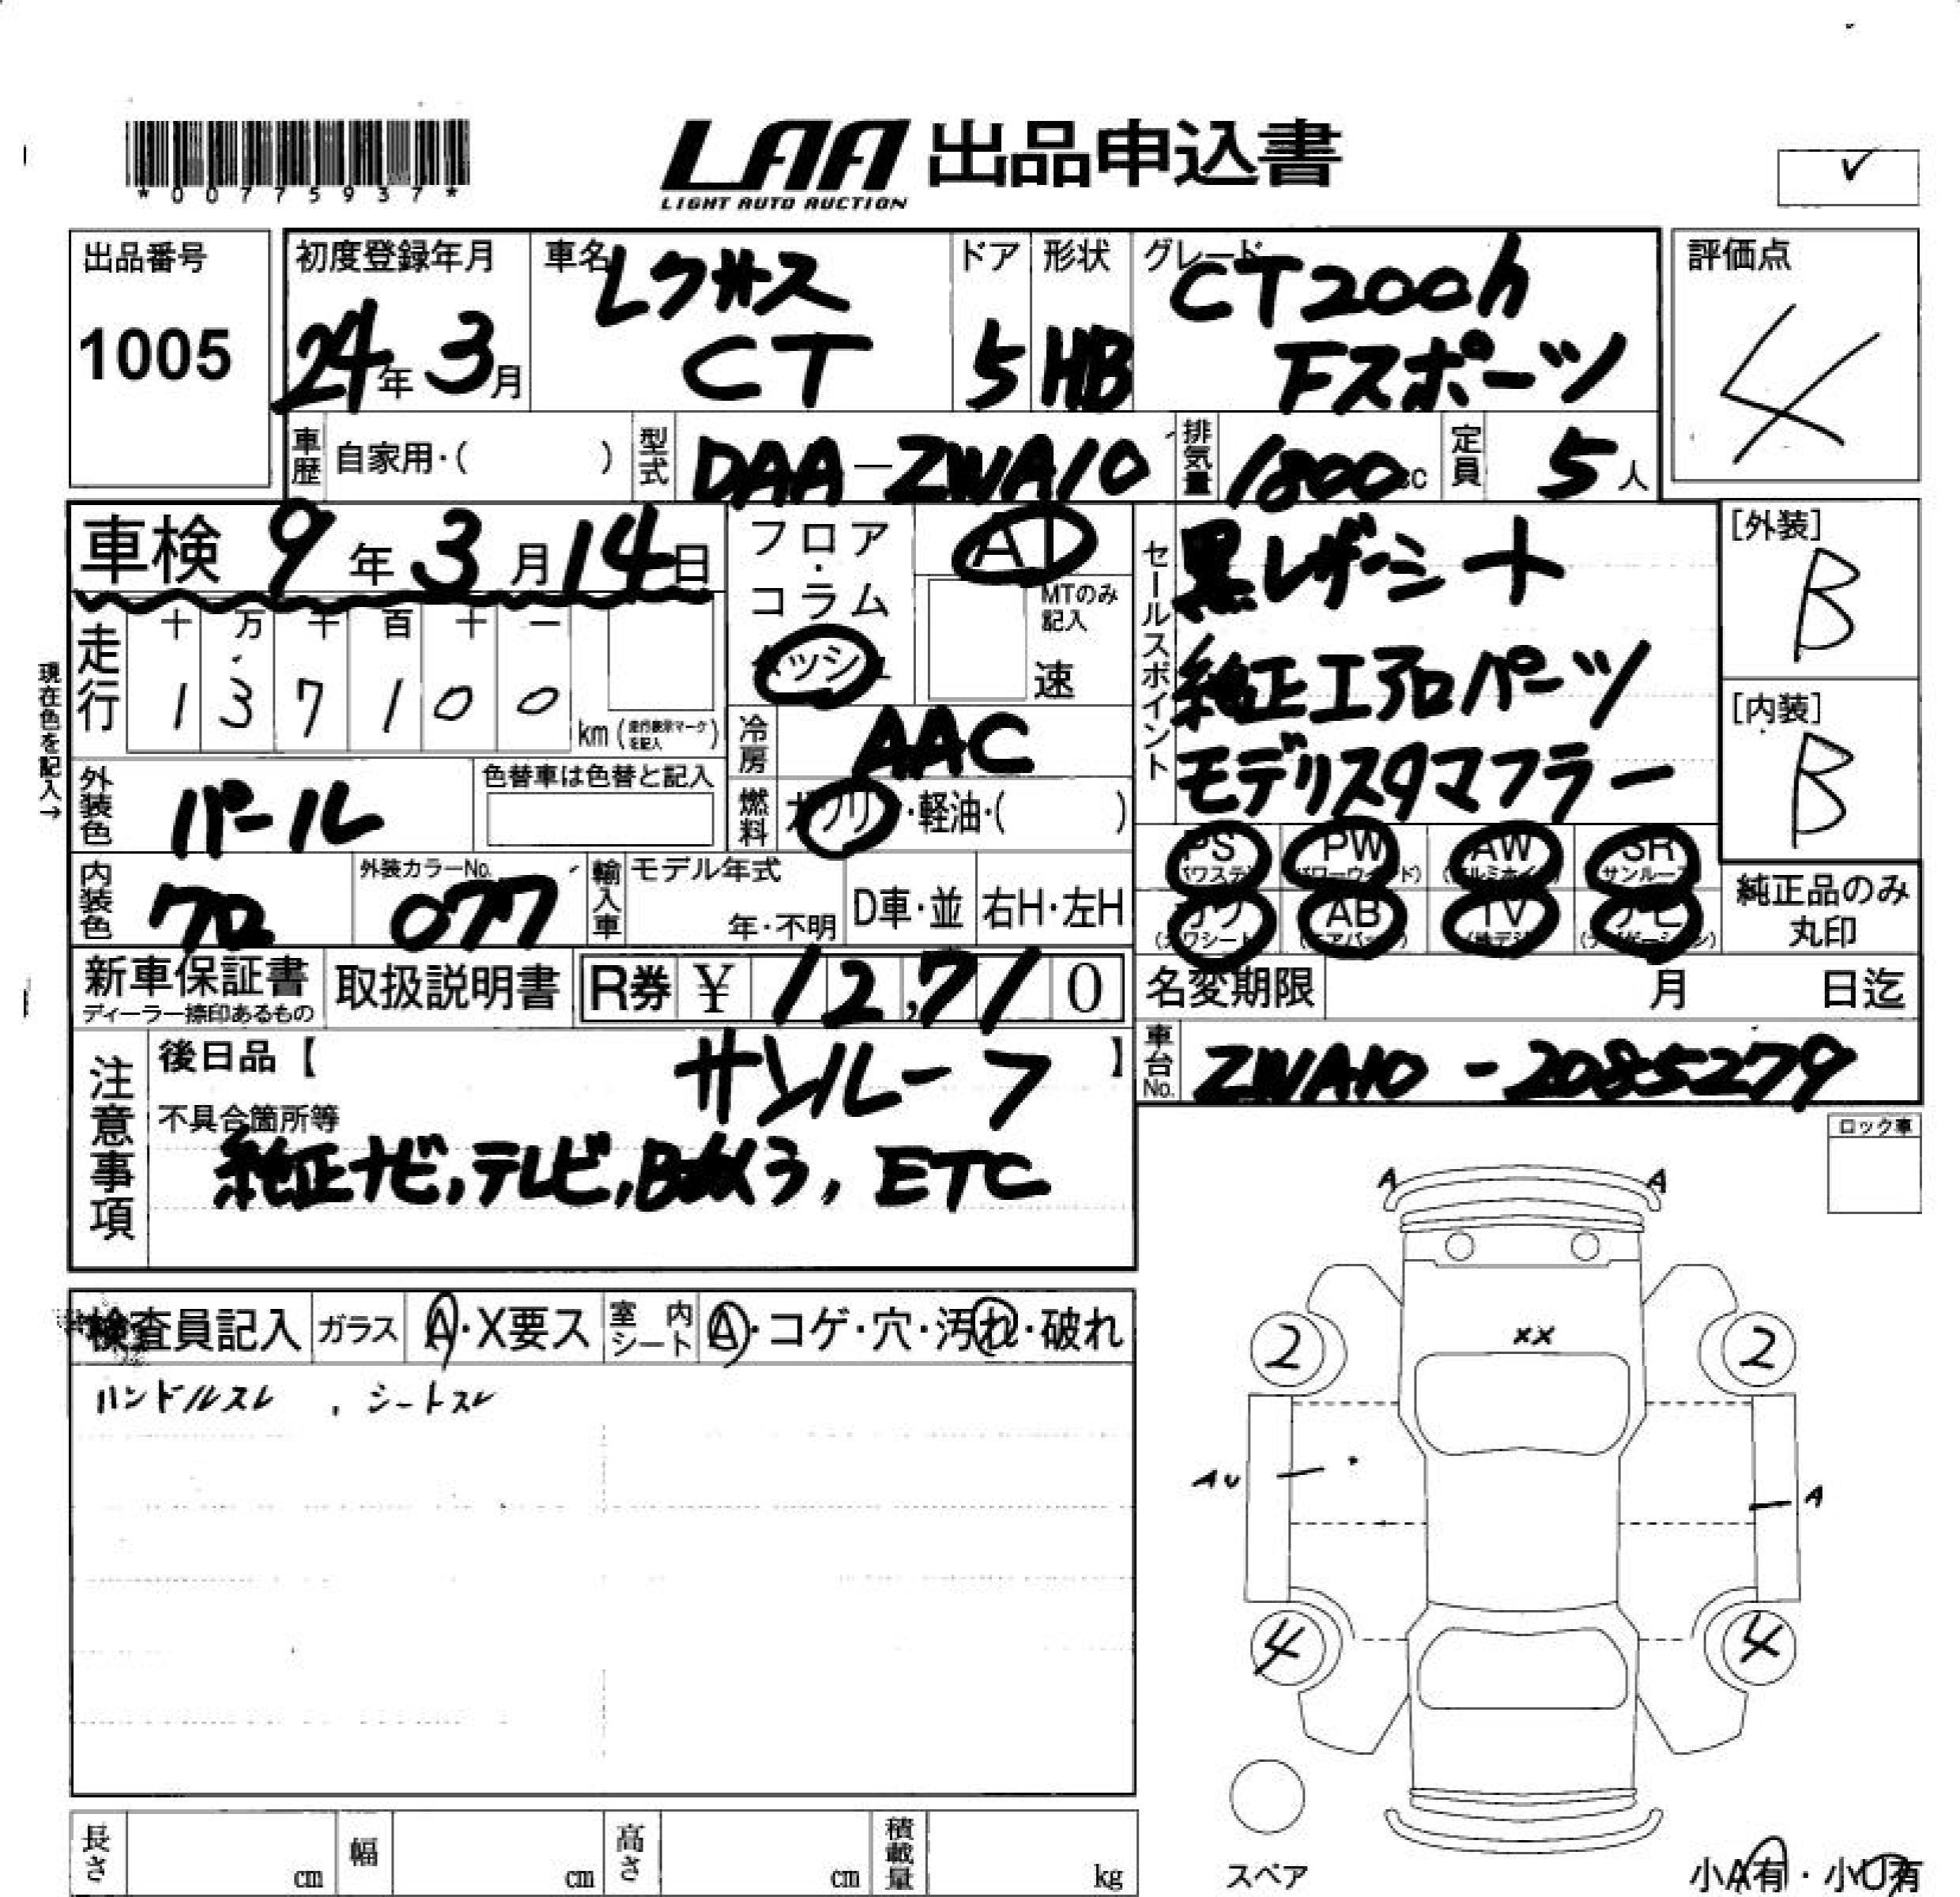 *00775937*
LAA 出品申込書
LIGHT AUTO AUCTION
出品番号
1005
初度登録年月
24年 3月
車名
レクサス
CT
ドア
5
形状
HB
グレード
CT200h
Fスポーツ
評価点
4
車歴 自家用・( )
型式 DAA-ZWA10
排気量 1800 cc
定員 5人
車検 9年 3月 14日
フロア・
コラム
AT
MTのみ
記入
速
セールスポイント
黒レザーシート
純正エアロパーツ
モデリスタマフラー
[外装]
B
[内装]
B
現在色を記入→
走行
十 万 千 百 十 一
1 3 7 1 0 0 km (走行表示マークを記入)
冷房 AAC
外装色 パール
色替車は色替と記入
燃料 ガソリン・軽油・( )
内装色 クロ
外装カラーNo.
077
輸入車 モデル年式
年・不明
D車・並
右H・左H
PS PW AW SR
(サンルーフ)
AB TV ナビ
純正品のみ
丸印
新車保証書
ディーラー捺印あるもの
取扱説明書
R券 ¥ 12,710
名変期限 月 日迄
車台No. ZWA10-2085279
注意事項
後日品【 】
サンルーフ
不具合箇所等
純正ナビ,テレビ,Bカメラ, ETC
ロック車
A A
検査員記入 ガラス A・X要ス 室内シート A・コゲ・穴・汚れ・破れ
ハンドルスレ , シートスレ
XX
2 2
AU A
4 4
長さ cm 幅 cm 高さ cm 積載量 kg
スペア
小A有・小U有